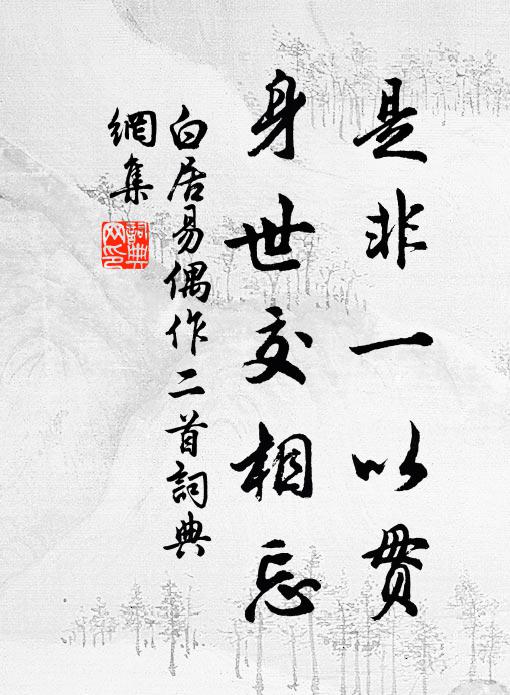 是非一以貫
身世交相忘
白居易偶作二首詞典
網集
詞典網印